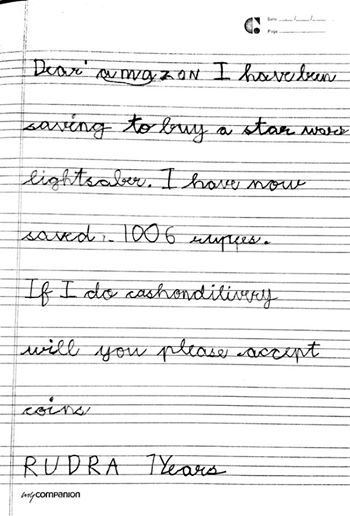 Date __/__/__
Page ____
Dear amazon I have been
saving to buy a star wars
lightsaber. I have now
saved :- 1006 rupyes.
If I do cashondilivery
will you please accept
coins
RUDRA 7Years
mycompanion